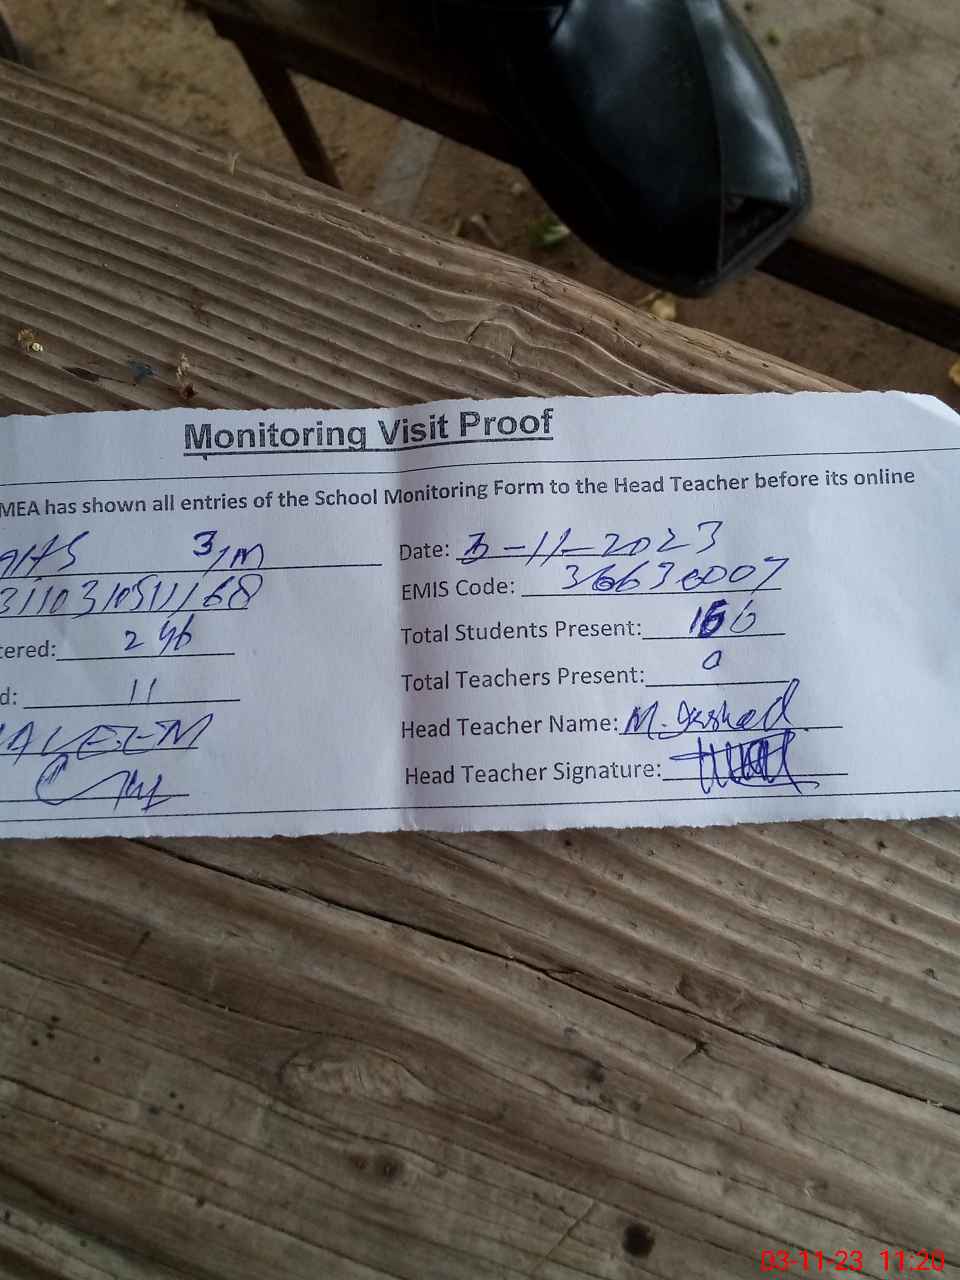 Monitoring Visit Proof
MEA has shown all entries of the School Monitoring Form to the Head Teacher before its online
3/m Date: 3-11-2023
3110310511168 EMIS Code: 36630007
tered: 246 Total Students Present: 166
d: 11 Total Teachers Present:
Head Teacher Name: M. Arshad
Head Teacher Signature:
03-11-23 11:20